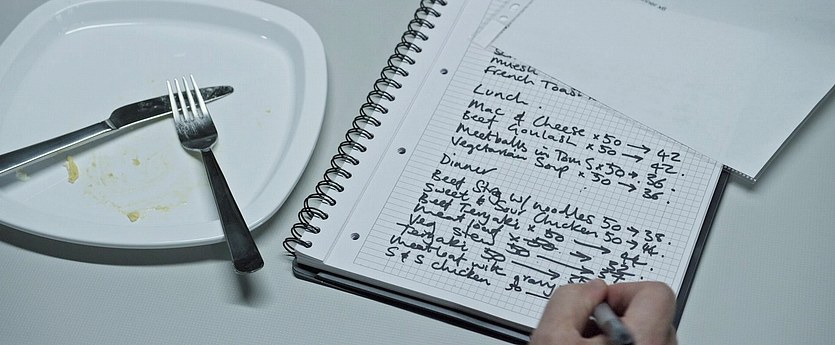 Muesli
French Toast
Lunch.
Mac & Cheese x 50 → 42
Beef Goulash x 50 → 42.
Meatballs in Tom S x 50 → 36.
Vegetarian Soup x 50 → 36.
Dinner
Beef Stew w/ noodles 50 → 38.
Sweet & Sour Chicken 50 → 44.
Beef Teriyaki x 50 →
Meat loaf x 50 →
Veg Stew 50 →
Teriyaki 50 →
Meatloaf with gravy
S & S chicken 50